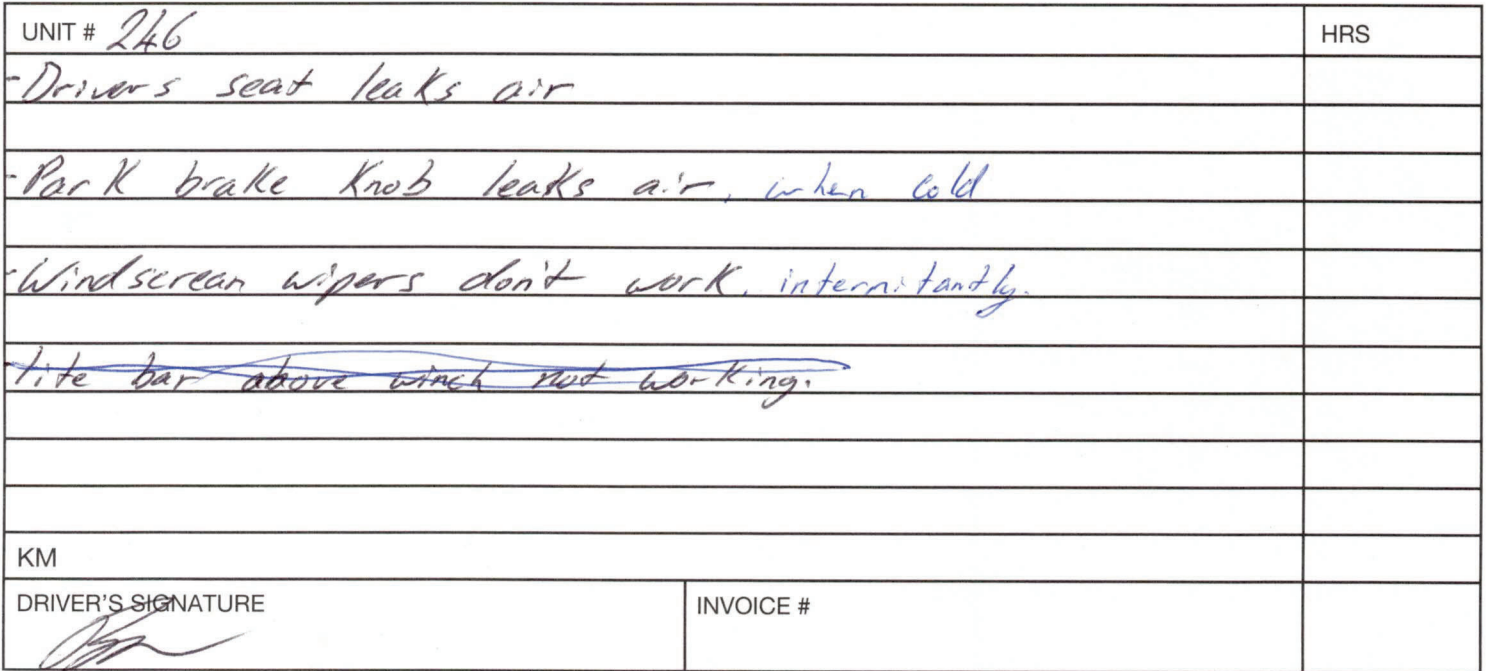 UNIT # 246
HRS
-Drivers seat leaks air
-Park brake knob leaks air, when cold
-Windscrean wipers don't work, intermitantly.
-lite bar above winch not working.
KM
DRIVER'S SIGNATURE
INVOICE #